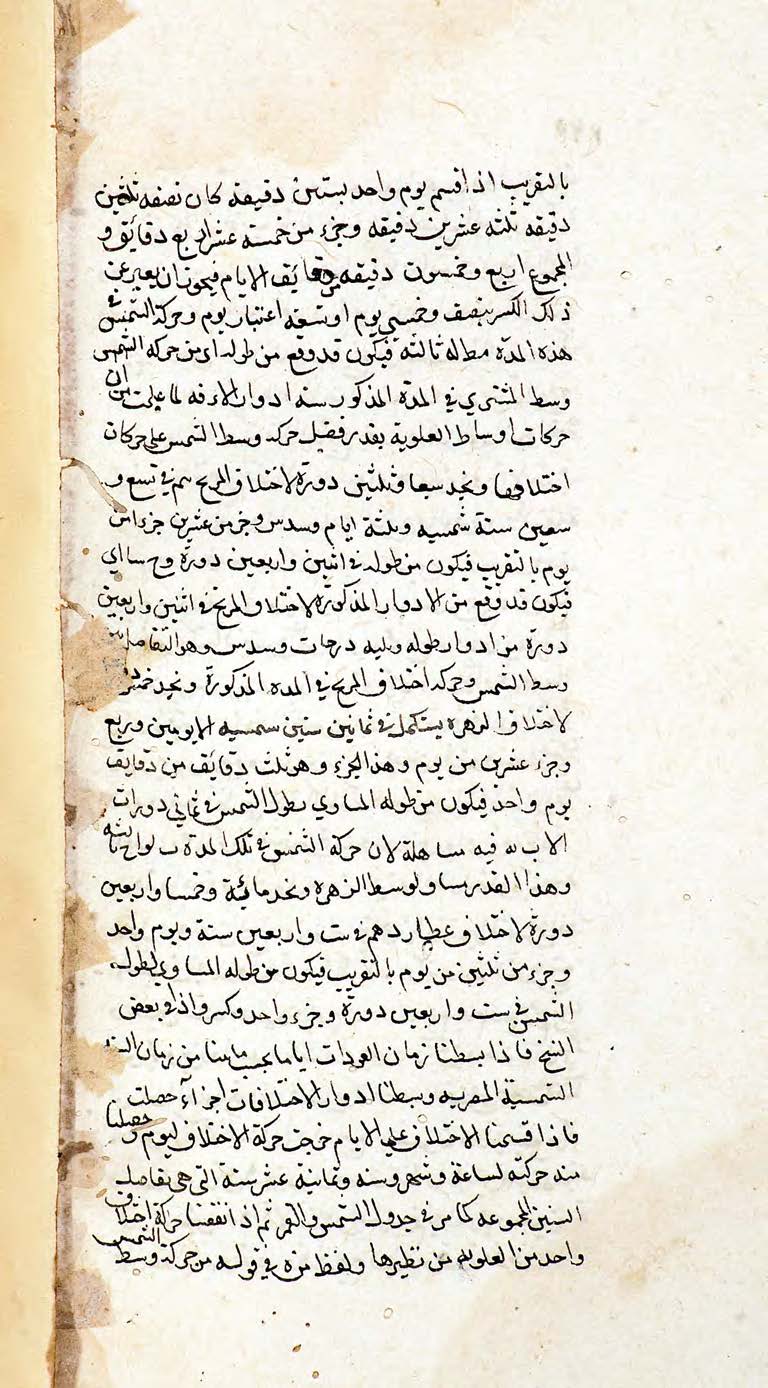 بالتقريب اذا قسم يوم واحد بستين دقيقه كان نصفه ثلثين
دقيقه ثلثه عشرين دقيقه وجزء من خمسة عشر اربع دقايق و
المجموع اربع وخمسون دقيقه من دقايق الايام فيجوز ان يعبر عن
ذلك الكسر بنصف وخمسي يوم او تسعه اعتبار يوم وحركة الشمس في
هذه المدة مطاله ثالثة فيكون قد وقع من طوله اى من حركة الشمس
وسط المشتري في المدة المذكور سته ادوار الا دقه لما علمت من ان
حركات اوساط العلوية بقدر فضل حركة وسط الشمس على حركات
اختلافها ونجد سبعا وثلثين دورة لاختلاف المريخ يتم في تسع و
سبعين سنة شمسيه وثلثة ايام وسدس وجزء من عشرين جزءا من
يوم بالتقريب فيكون من طوله في اثنين واربعين دورة وح ساى
فيكون قد وقع من الادوار المذكورة لاختلاف المريخ في اثنين واربعين
دورة من ادوار طوله وثلثه درجات وسدس وهو التفاضل بين
وسط الشمس وحركة اختلاف المريخ في المدة المذكورة ونجد خمسة
لاختلاف الزهرة يستكمل في ثمانين سنين شمسيه الا يومين وربع
وجزء عشرين من يوم وهذا الجزء وهو ثلث دقائق من دقايق
يوم واحد فيكون من طوله المساوي بطول الشمس في ثماني دورات
الا ب يه فيه مساهلة لان حركة الشمس في تلك المدة ب لواح ثالثه
وهذا القدر مساو لوسط الزهرة ونجد مائة وخمسا واربعين
دورة لاختلاف عطارد هم في ست واربعين سنة ويوم واحد
وجزء من ثلثين من يوم بالتقريب فيكون من طوله المساوي لطول
الشمس في ست واربعين دورة وجزء واحد وكسر واذا في بعض
النسخ فاذا بسطنا زمان العودات اياما بحسب ما بينا من زمان السنة
الشمسية المصريه وبسطنا ادوار الاختلافات اجزآء حصلت
فاذا قسمنا الاختلاف على الايام خرجت حركة الاختلاف ليوم و حصلنا
منه حركته لساعة وشهر وسنه وثمانية عشر سنة التى هى تفاضل
السنين المجموعه كما مر في جدول الشمس والقمر ثم اذا نقصنا حركة اختلاف
واحد من العلويه من نظيرها ولفظ من في قوله من حركة وسط الشمس